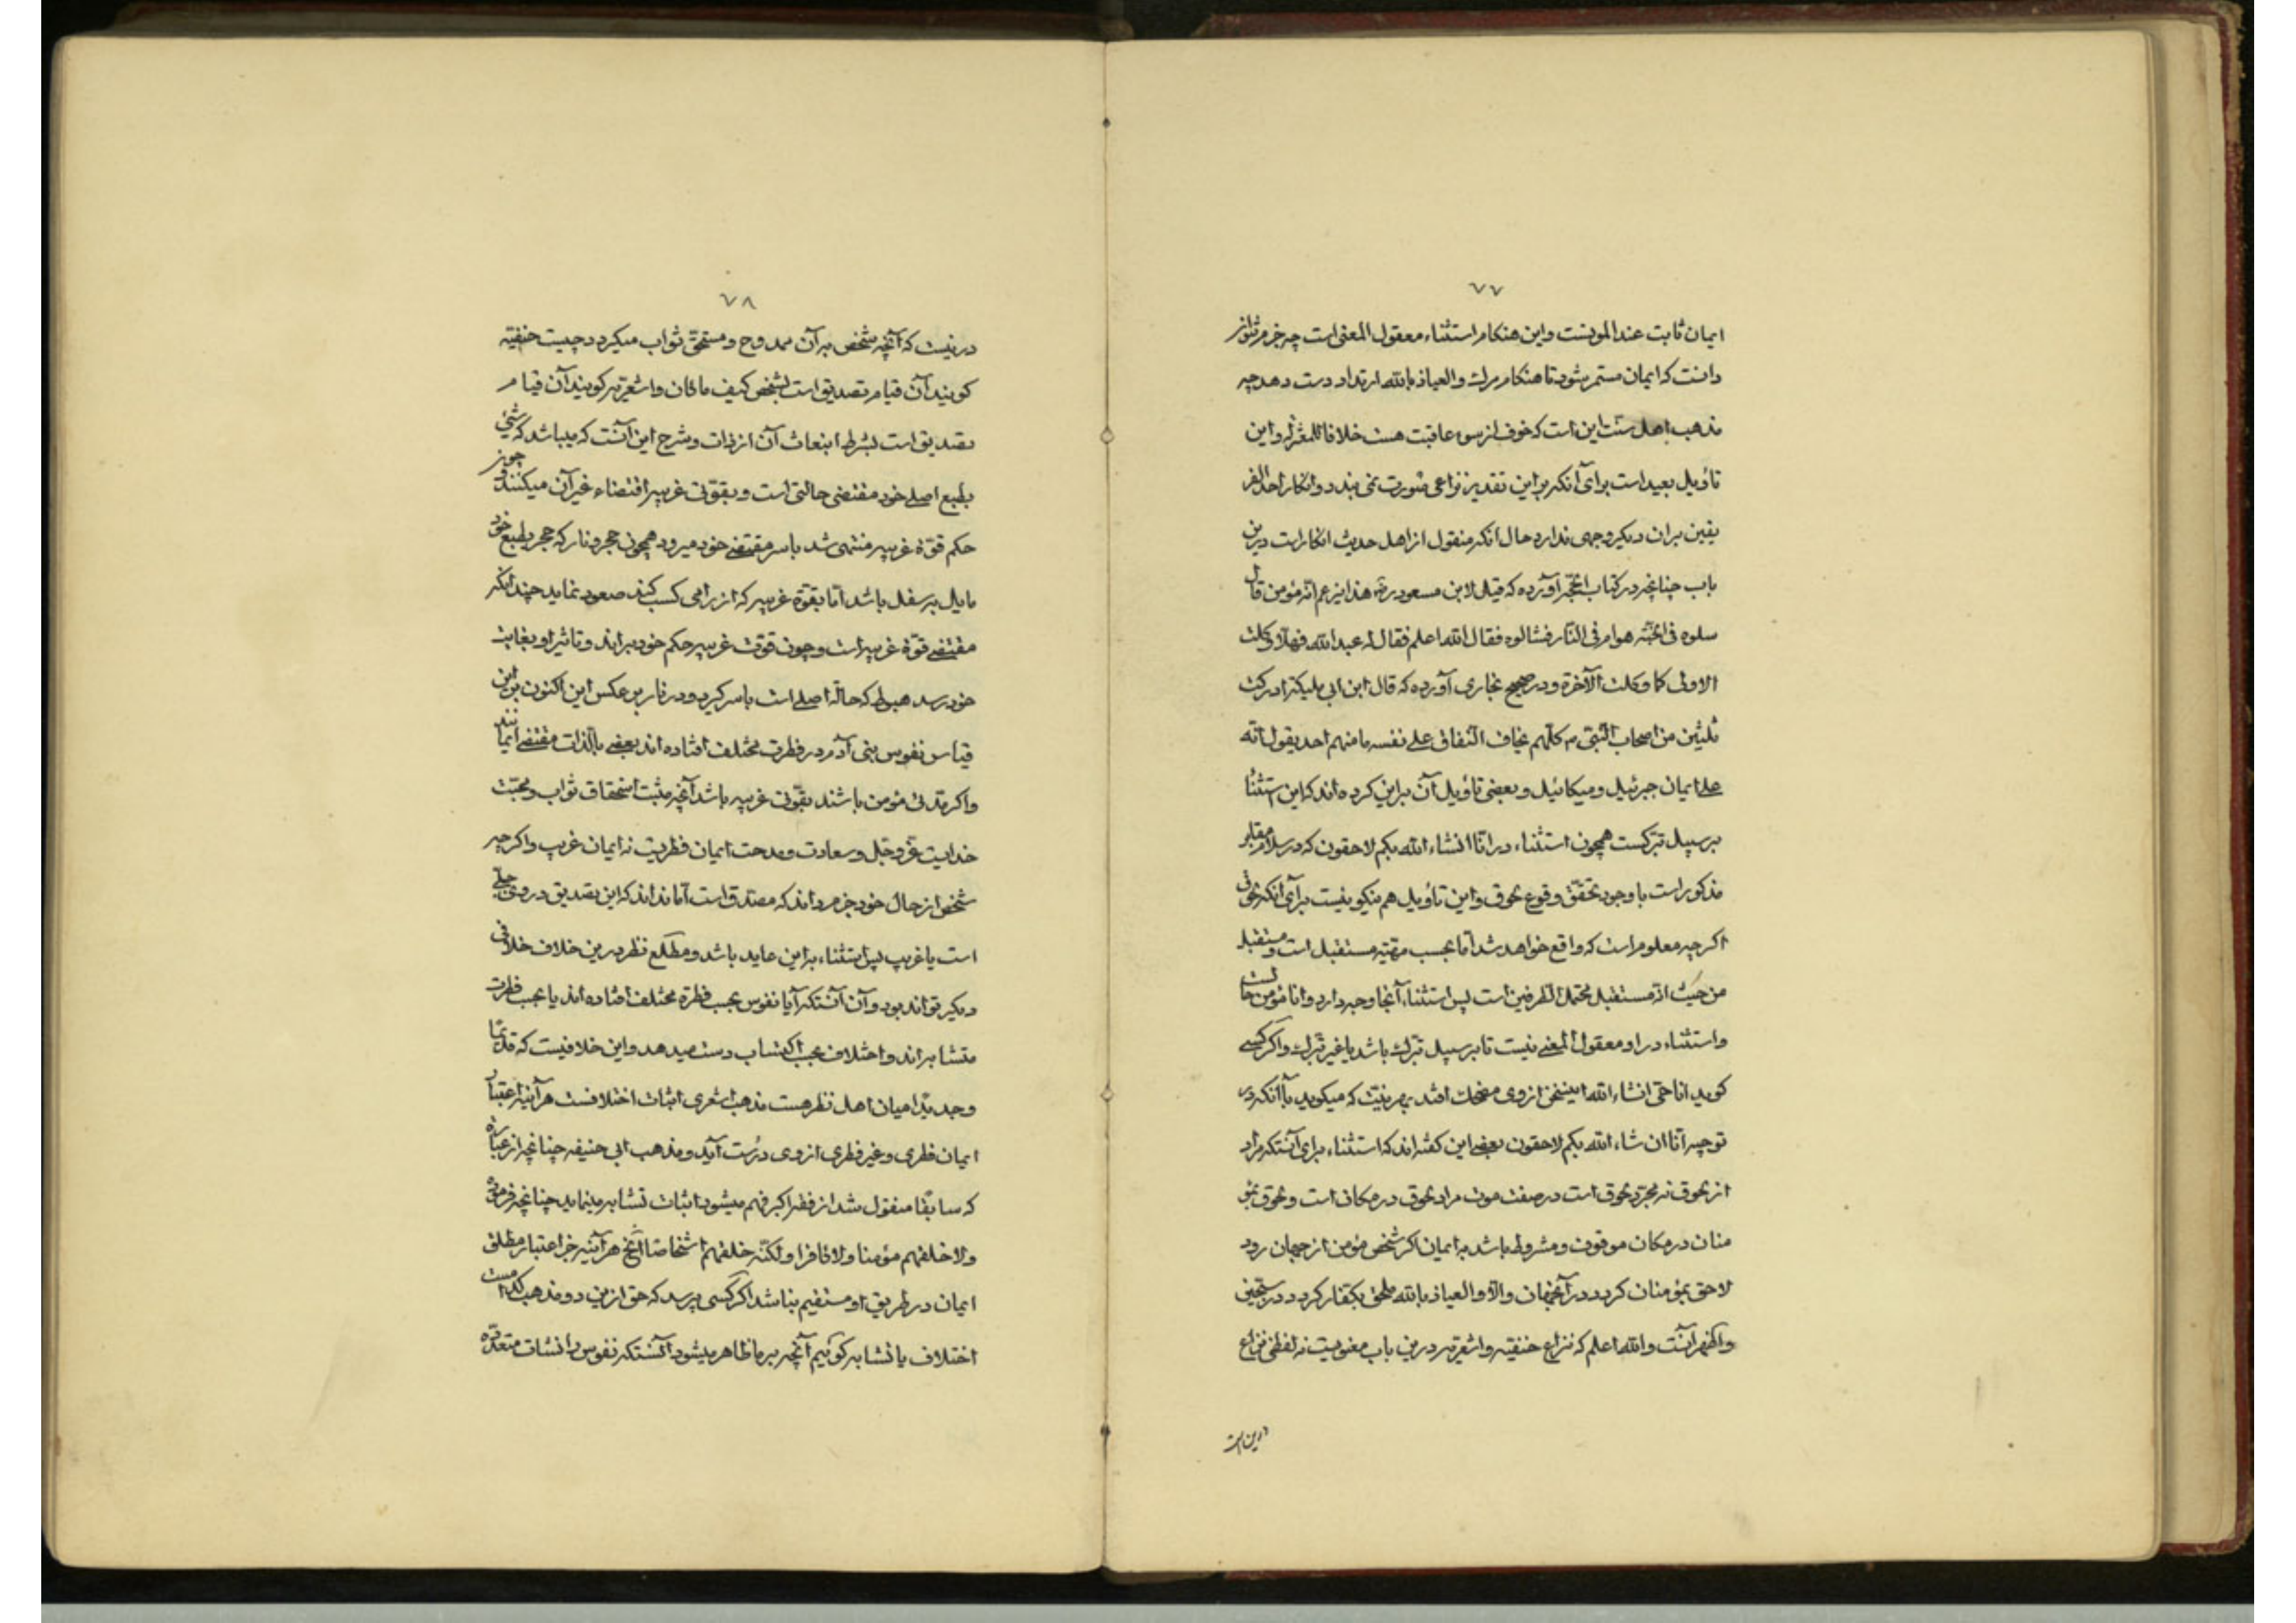 ٧٧
ایمان ثابت عند الموتست واین هنکام استثناء معقول المعنی است چه جزم نتوان
دانست که ایمان مستمر شود تا هنکام مرک والعیاذ بالله ارتداد دست دهد چه
مذهب اهل سنت این است که خوف از سوء عاقبت هست خلافا للمعتزله واین
تاویل بعید است برای آنکه براین تقدیر نزاعی صورت نمی بندد وانکار احد
یقین بران دیکر وجهی ندارد حال انکه منقول از اهل حدیث انکارات درین
باب چنانچه در کتاب الحجه آورده که قیل لابن مسعود رضه هذا یزعم انه مؤمن قال
سلوه فی الجنّه هو ام فی النّار فسالوه فقال الله اعلم فقال له عبد الله فهلا وکلت
الاولی کما وکلت الآخرة ودر صحیح بخاری آورده که قال ابن ابی ملیکه ادرکت
ثلثین من اصحاب النّبی م کلّهم یخاف النّفاق علی نفسه ما منهم احد یقول انّه
علی ایمان جبرئیل ومیکائیل وبعضی تاویل آن براین کرده اند که این استثنا
بر سبیل تبرکست همچون استثناء در انّا انشاء الله بکم لاحقون که در سلام مقابر
مذکور است با وجود تحقّق وقوع لحوق واین تاویل هم نیکو نیست برای آنکه لحوق
اکرچه معلوم است که واقع خواهد شد امّا بحسب مرتبه مستقبل است ومستقبل
من حیث انّه مستقبل محتمل الطرفین است پس استثناء آنجا وجه دارد وانا مؤمن حالست
واستثناء در او معقول المعنی نیست تا بر سبیل تبرک باشد یا غیر تبرک واکر کسی
کوید انا حیّ انشاء الله اینسخن از وی مضحک افتد بهر نیّت که میکوید با آنکه در
توجیه انّا ان شاء الله بکم لاحقون بعضی این کفته اند که استثناء برای آنستکه مراد
از لحوق نه مجرّد لحوق است در صفت موت مراد لحوق در مکان است ولحوق بمؤ
منان در مکان موقوف ومشروط باشد به ایمان اکر شخص مؤمن از جهان رود
لاحق بمؤمنان کردد در آنجهان والّا والعیاذ بالله ملحق بکفّار کردد در سجّین
واظهر آنست والله اعلم که نزاع حنفیّه واشعریّه درین باب معنویست نه لفظی نزاع
در این است
٧٨
درنیست که آنچه شخص بر آن ممدوح ومستحقّ ثواب میکردد چیست حنفیّه
کویند آن قیام تصدیق است بشخص کیف ما کان واشعریّه کویند آن قیام
تصدیق است بشرط انبعاث آن از ذات وشرح این آنست که میباشد که شیئ
بطبع اصلی خود مقتضی حالتی است وبقوّتی غریبه اقتضاء غیر آن میکنند وچون
حکم قوّة غریبه منتهی شد باسر مقتضی خود میرود همچون حجر ونار که حجر بطبع خود
مایل بسفل باشد امّا بقوّة غریبه که از رامی کسب کند صعود نماید چندانکه
مقتضی قوّة غریبه است وچون قوّت غریبه حکم خود براند وتاثیر او بغایت
خود رسد هبوط که حالة اصلی است باسر کیرد ودر نار برعکس این اکنون براین
قیاس نفوس بنی آدم در فطرت مختلف افتاده اند بعضی بالذات مقتضی ایمانند
واکر مدّتی مؤمن باشند بقوّتی غریبه باشد آنچه مثبت استحقاق ثواب ومحبّت
خدایست عزّ وجلّ وسعادت ومدحت ایمان فطریست نه ایمان غریب واکرچه
شخص از حال خود جزم داند که مصدّق است امّا نداند که این تصدیق در وی جبلّی
است یا غریب پس استثناء براین عاید باشد ومطلع نظر درین خلاف خلافی
دیکر تواند بود وآن آنستکه آیا نفوس بحسب فطرة مختلف افتاده اند یا بحسب فطرت
متشابه اند واختلاف بحسب اکتساب دست میدهد واین خلافیست که قدیمًا
وجدیدًا میان اهل نظر هست مذهب اشعری اثبات اختلافست هرآینه اعتبار
ایمان فطری وغیر فطری از وی درست آید ومذهب ابی حنیفه چنانچه از عبارة
که سابقًا منقول شد از فقه اکبر فهم میشود اثبات تشابه مینماید چنانچه فرموده
ولا خلقهم مؤمنا ولا کافرا ولکنّه خلقهم اشخاصًا الخ هرآینه جز اعتبار مطلق
ایمان در طریق او مستقیم نباشد اکر کسی پرسد که حق ازین دو مذهب کدامست
اختلاف یا تشابه کوئیم آنچه بر ما ظاهر میشود آنستکه نفوس را نشات متعدّده